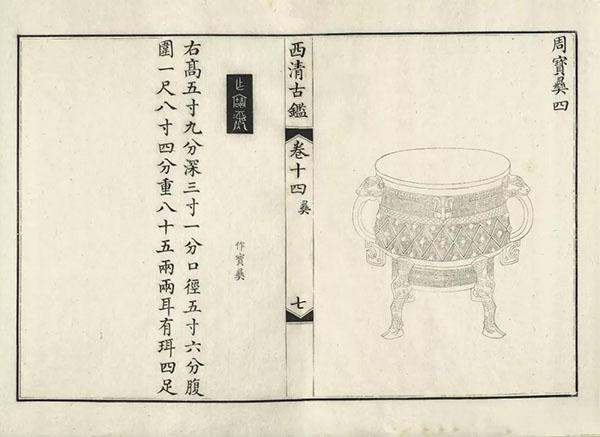 周寶彝四
西清古鑑
卷十四
彝
七
作寶彝
作寶彝
右高五寸九分深三寸一分口徑五寸六分腹
圍一尺八寸四分重八十五兩兩耳有珥四足